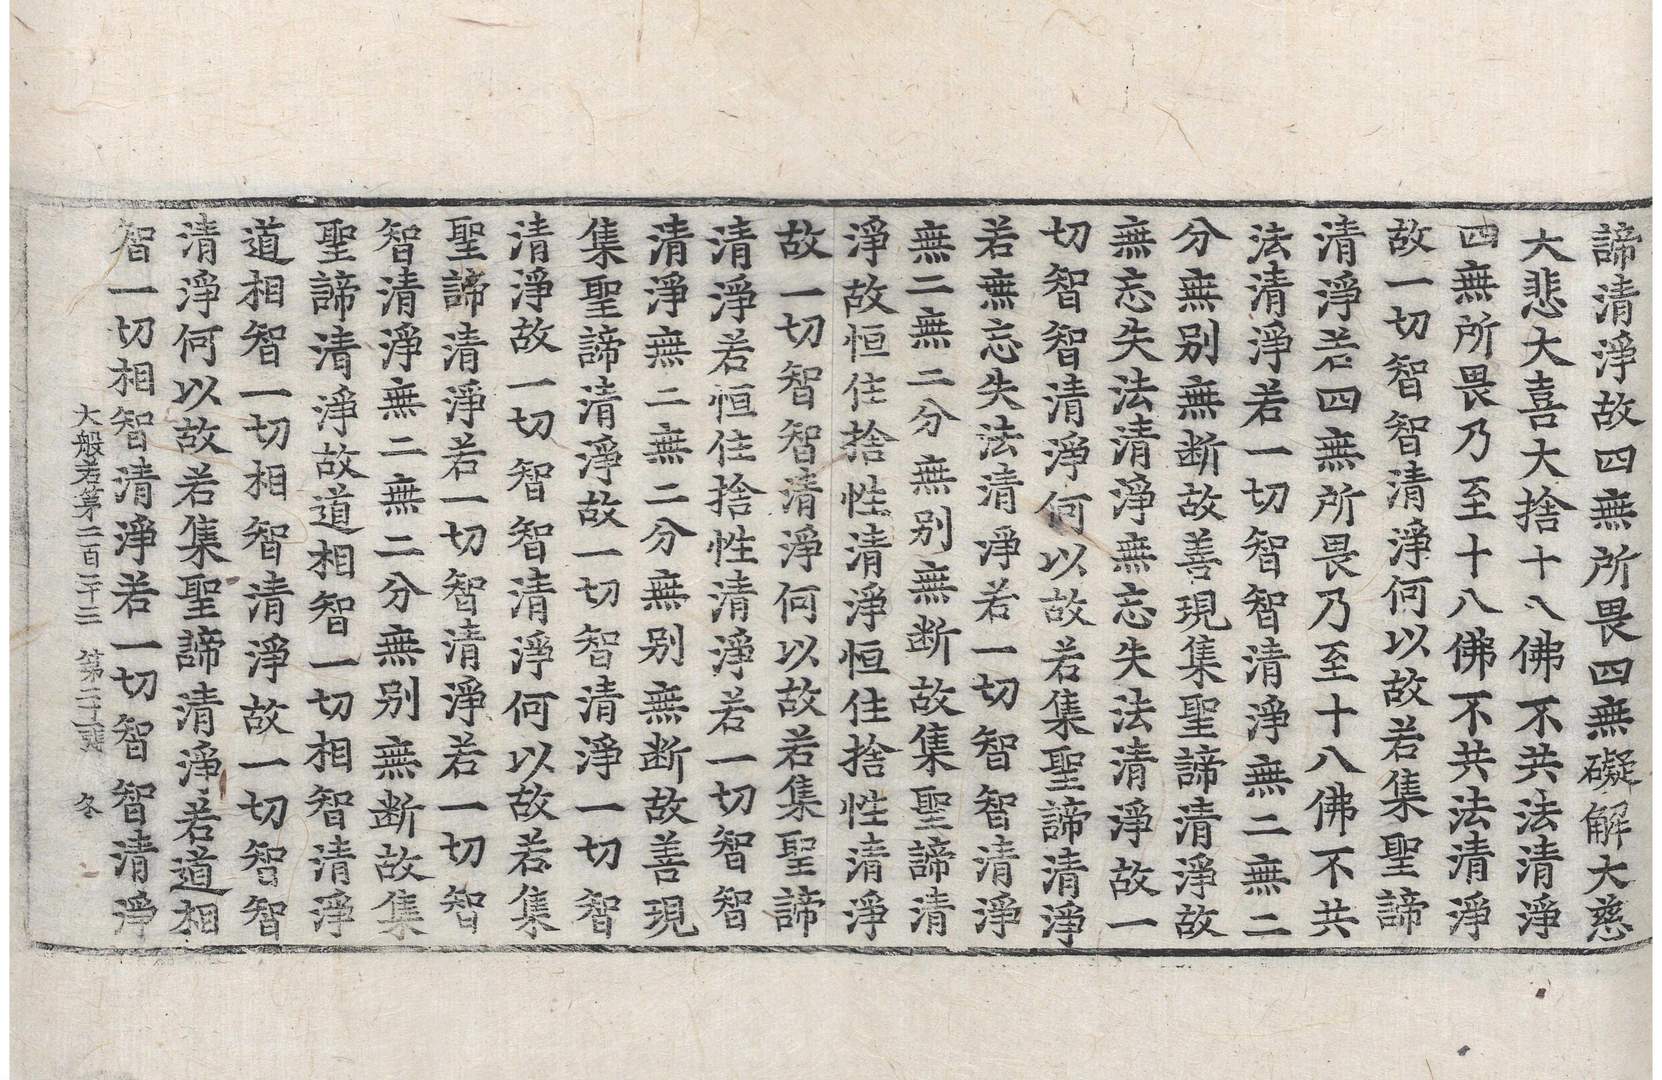 諦清淨故四無所畏四無礙解大慈
大悲大喜大捨十八佛不共法清淨
四無所畏乃至十八佛不共法清淨
故一切智智清淨何以故若集聖諦
清淨若四無所畏乃至十八佛不共
法清淨若一切智智清淨無二無二
分無別無断故善現集聖諦清淨故
無忘失法清淨無忘失法清淨故一
切智智清淨何以故若集聖諦清淨
若無忘失法清淨若一切智智清淨
無二無二分無別無断故集聖諦清
淨故恒住捨性清淨恒住捨性清淨
故一切智智清淨何以故若集聖諦
清淨若恒住捨性清淨若一切智智
清淨無二無二分無別無断故善現
集聖諦清淨故一切智清淨一切智
清淨故一切智智清淨何以故若集
聖諦清淨若一切智清淨若一切智
智清淨無二無二分無別無断故集
聖諦清淨故道相智一切相智清淨
道相智一切相智清淨故一切智智
清淨何以故若集聖諦清淨若道相
智一切相智清淨若一切智智清淨
大般若第二百二十三 第二十張 冬